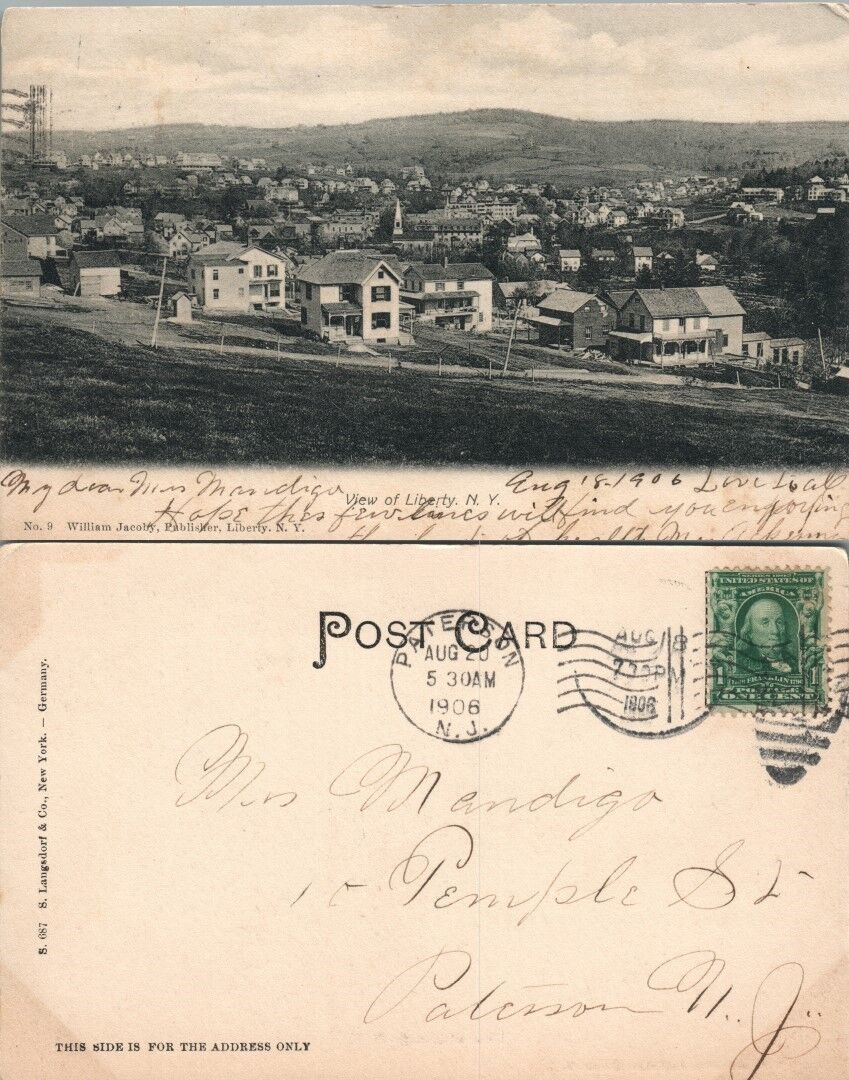 My dear Mrs Mandigo Aug 18-1906 Love to all
View of Liberty. N. Y.
Hope thes few lines will find you enjoying
No. 9 William Jacoby, Publisher, Liberty. N. Y.
health Mrs
POST CARD
PATERSON
AUG 20
5 30AM
1906
N. J.
AUG 18
7 PM
1906
SERIES 1902
UNITED STATES OF
AMERICA
FRANKLIN
1 1
POSTAGE
ONE CENT
S. 687 S. Langsdorf & Co., New York. — Germany.
Mrs Mandigo
Temple St
Paterson N. J.
THIS SIDE IS FOR THE ADDRESS ONLY